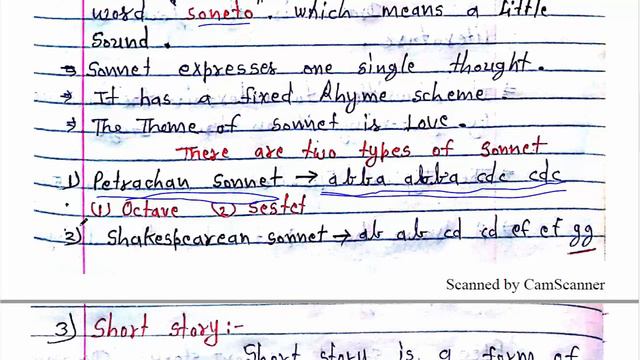 word "soneto". which means a little
Sound.
⇒ Sonnet expresses one single thought.
⇒ It has a fixed Rhyme scheme.
⇒ The Theme of sonnet is Love.
There are two types of Sonnet
1) Petrachan sonnet → abba abba cdc cdc
(1) Octave (2) Sestet
2) Shakespearean sonnet → ab ab cd cd ef ef gg
Scanned by CamScanner
3) Short story:-
Short story is a form of